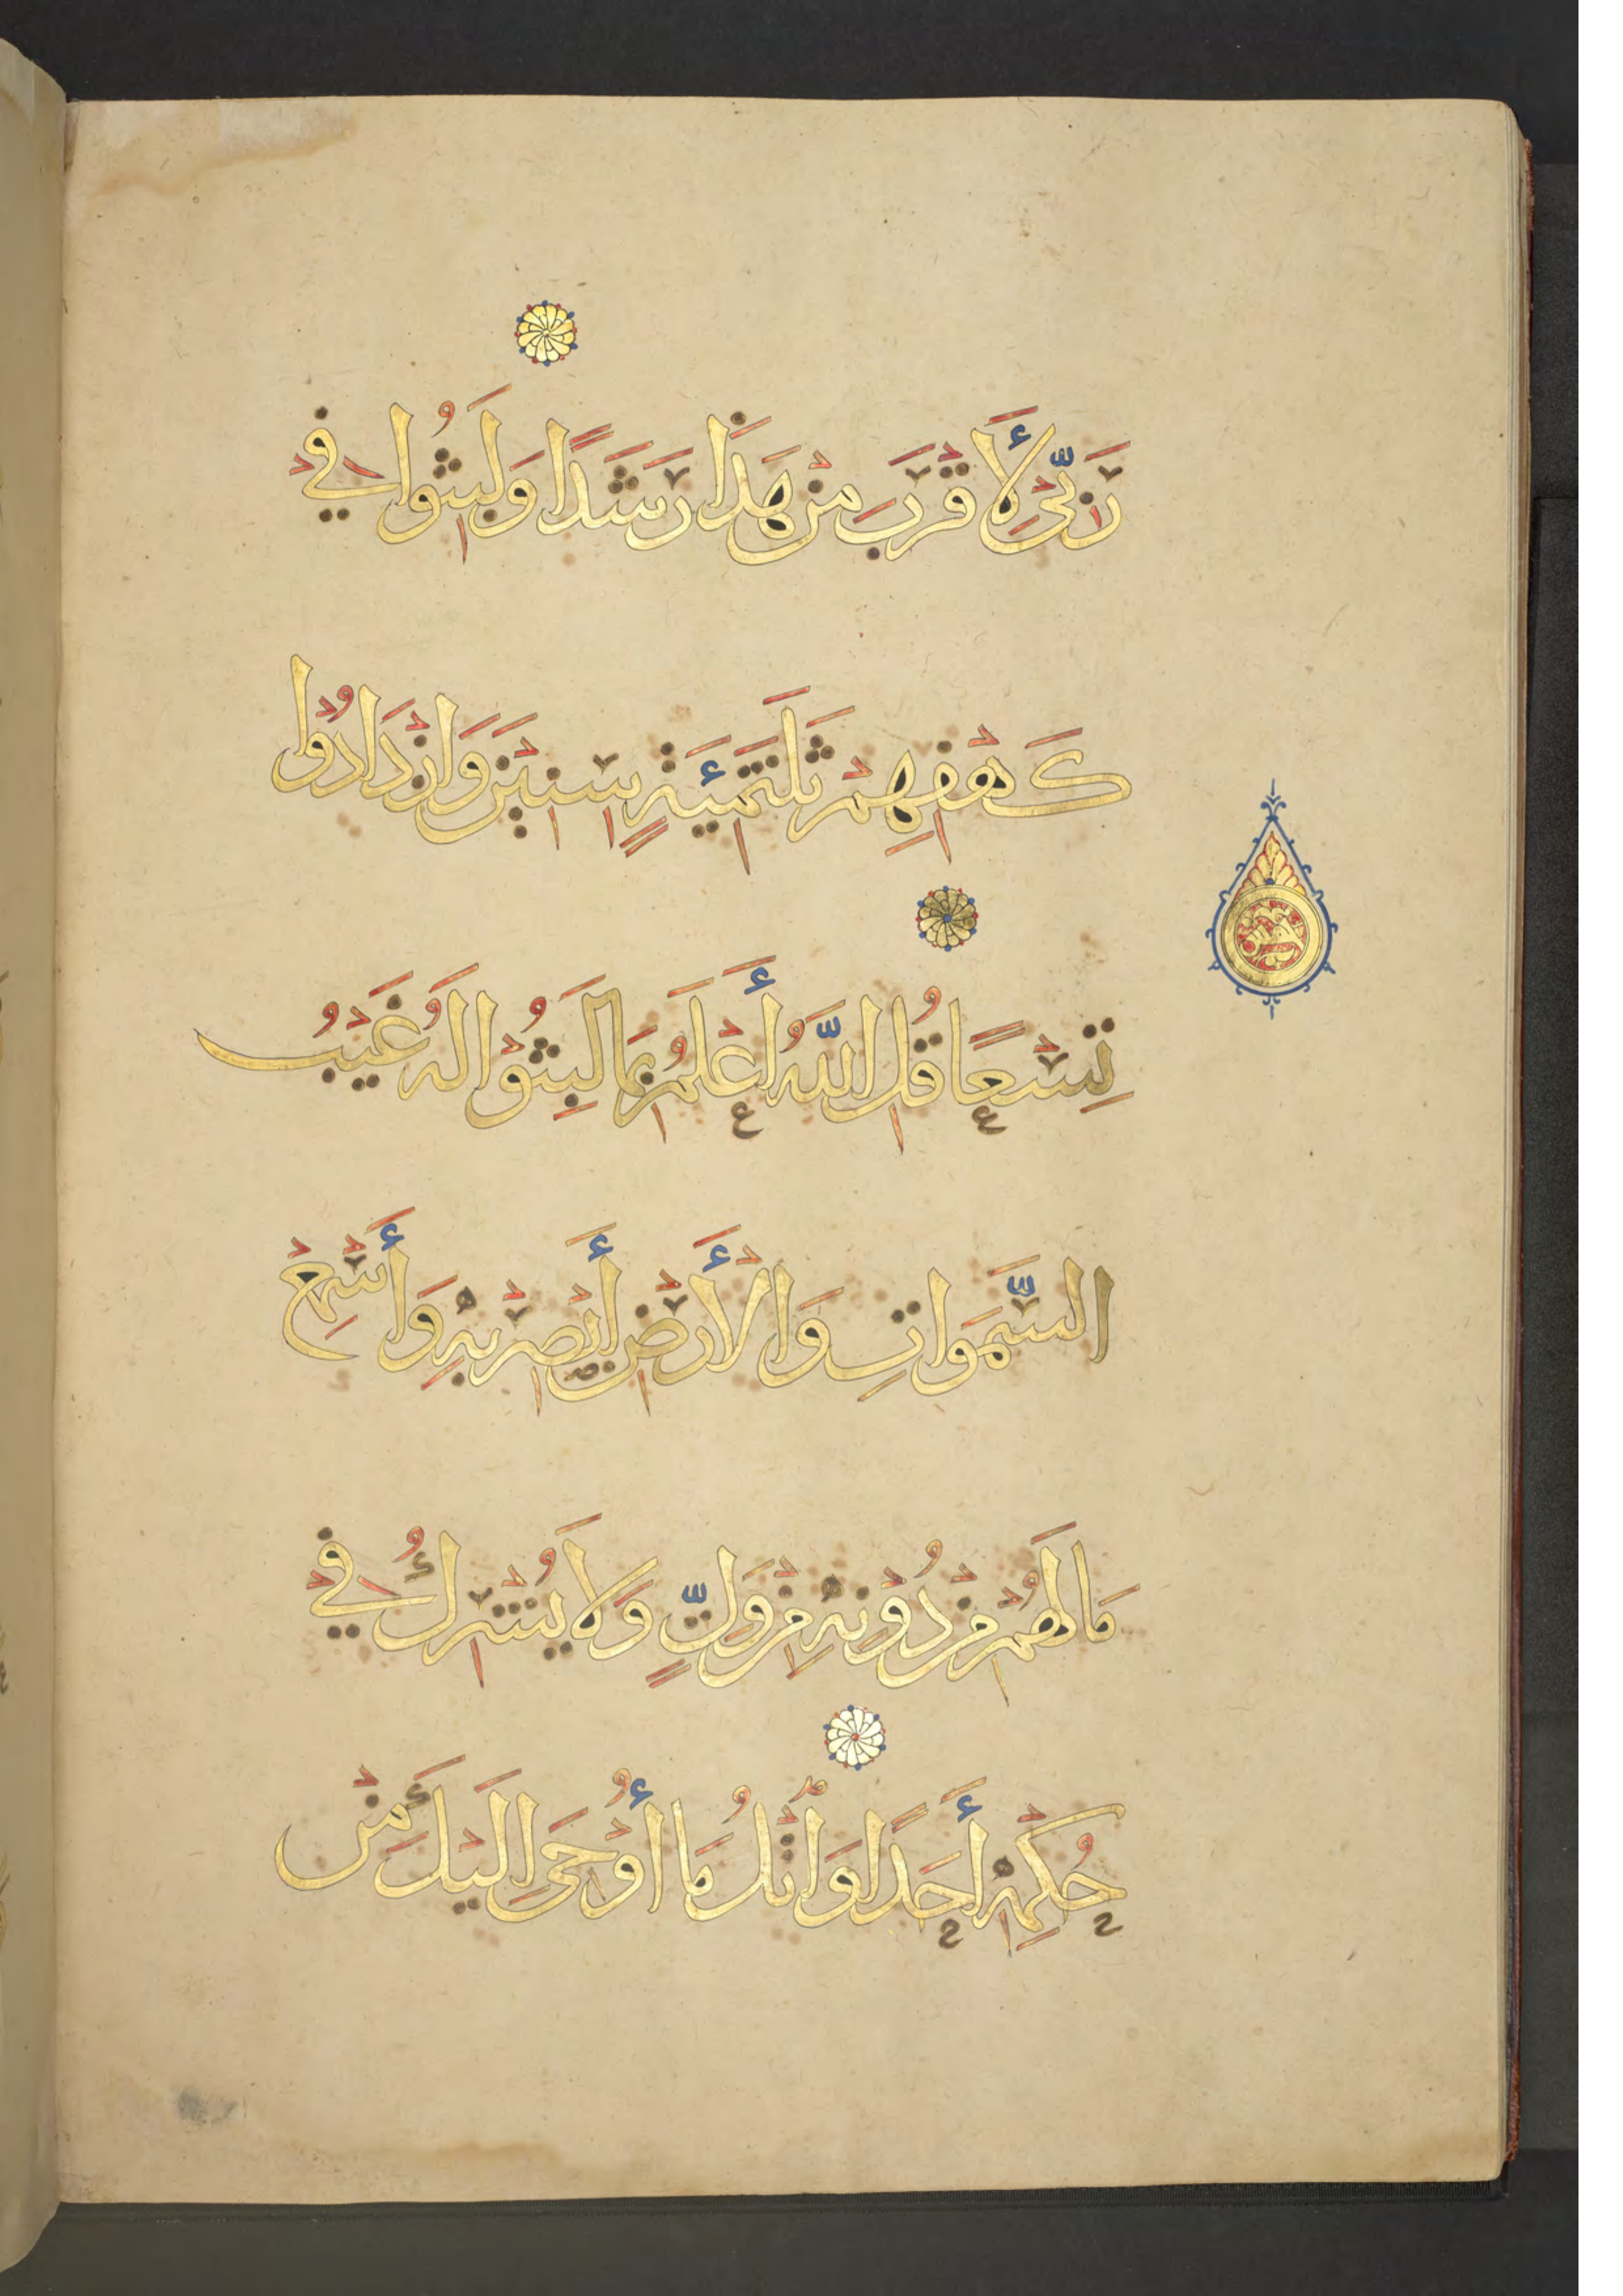 رَبِّي لِأَقْرَبَ مِنْ هَذَا رَشَدًا وَلَبِثُوا فِي
كَهْفِهِمْ ثَلَثَمِئَةٍ سِنِينَ وَازْدَادُوا
تِسْعًا قُلِ اللَّهُ أَعْلَمُ بِمَا لَبِثُوا لَهُ غَيْبُ
السَّمَوَاتِ وَالْأَرْضِ أَبْصِرْ بِهِ وَأَسْمِعْ
مَا لَهُمْ مِنْ دُونِهِ مِنْ وَلِيٍّ وَلَا يُشْرِكُ فِي
حُكْمِهِ أَحَدًا وَاتْلُ مَا أُوحِيَ إِلَيْكَ مِنْ